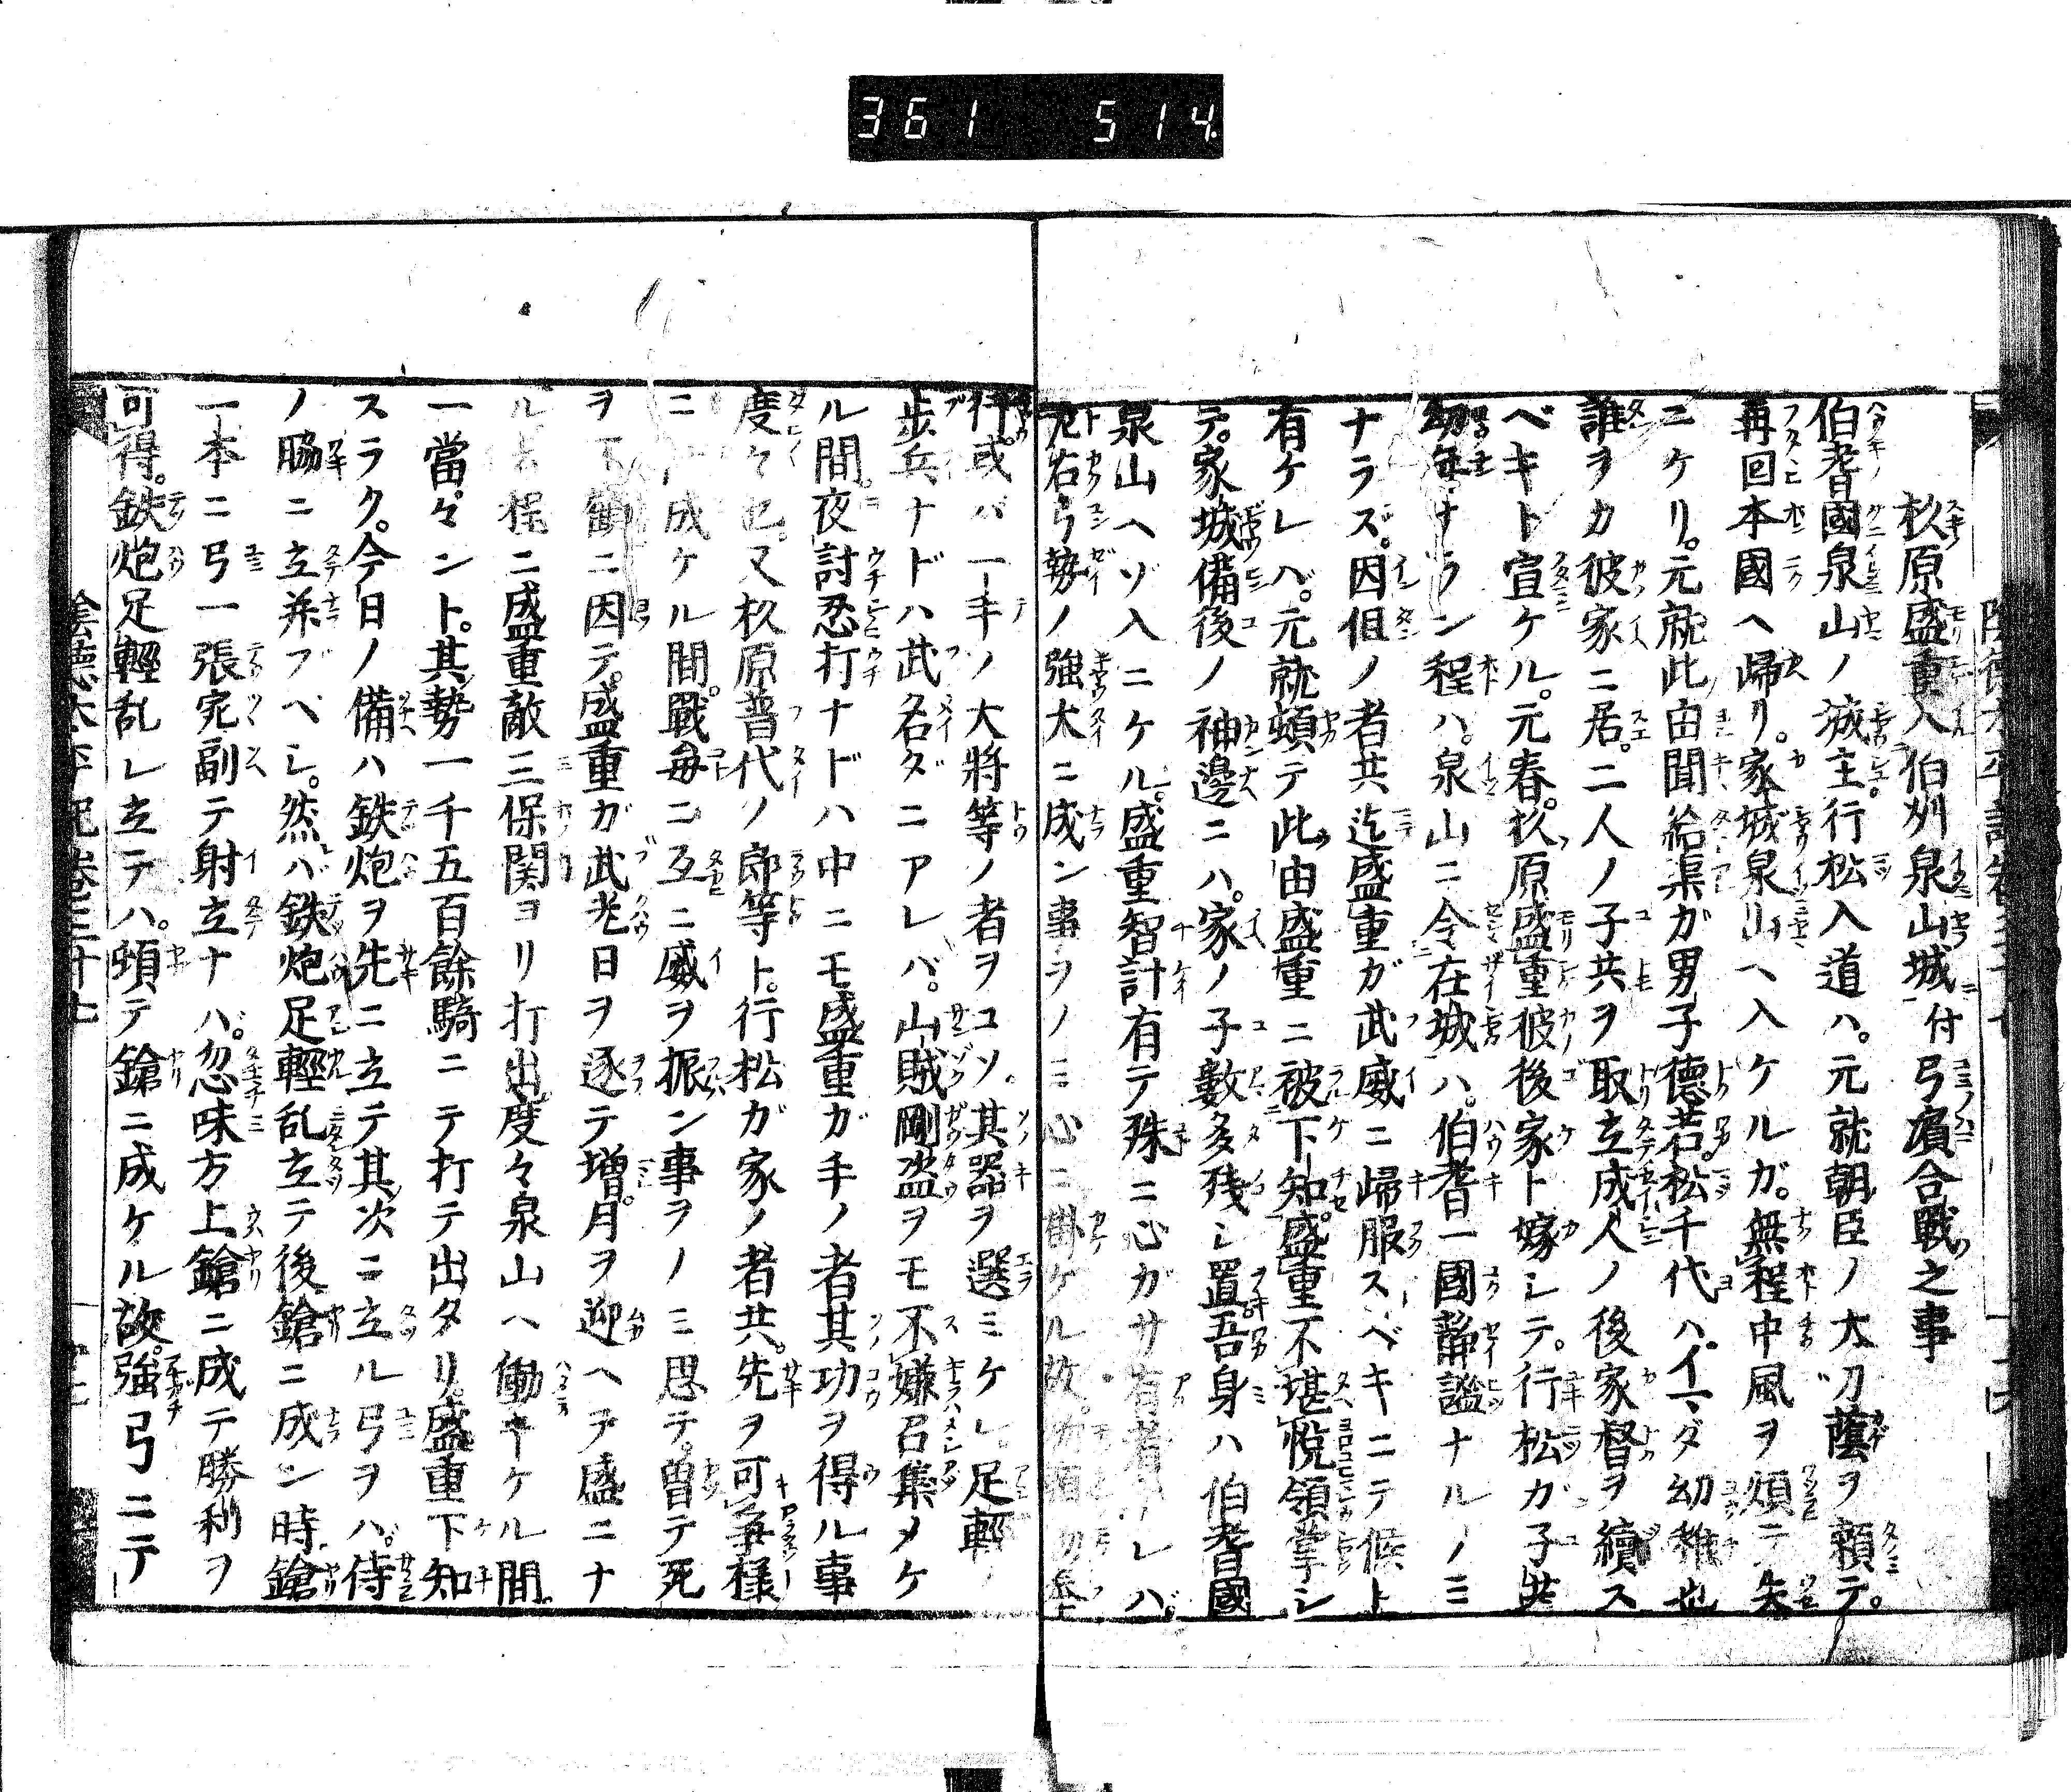 361 514
杦原盛重入伯刕泉山城付弓濵合戰之事
伯耆國泉山ノ城主行松入道ハ。元就朝臣ノ太刀蔭ヲ頼テ。
再回本國ヘ歸リ。家城泉山ヘ入ケルガ。無程中風ヲ煩テ失
ニケリ。元就此由聞給渠ガ男子德若。松千代ハイマダ幼稚也
誰ヲカ彼家ニ居。二人ノ子共ヲ取立成人ノ後家督ヲ續ス
ベキト宣ケル。元春。杦原盛重彼後家ト嫁シテ。行松ガ子共
幼年ナラン程ハ。泉山ニ令在城ハ。伯耆一國靜謐ナルノミ
ナラズ。因伹ノ者共迄盛重ガ武威ニ歸服スベキニテ候ト
有ケレハ。元就頓テ此由盛重ニ被下知。盛重不堪悅領掌シ
テ。家城備後ノ神邊ニハ。家ノ子數多残シ置吾身ハ伯耆國
泉山ヘゾ入ニケル。盛重智計有テ殊ニ心ガサ有者ナレバ。
兎右弓勢ノ強大ニ成ン事ヲノミ心ニ掛ケル故。
行。或バ一手ノ大將等ノ者ヲコソ。其器ヲ選ミケレ。足輕
歩兵ナドハ武名ダニアレバ。山賊剛盗ヲモ不嫌召集メケ
ル間。夜討忍打ナドハ中ニモ盛重ガ手ノ者其功ヲ得ル事
度々也。又杦原普代ノ郎等ト。行松ガ家ノ者共。先ヲ可爭様
ニ成ケル間。戰毎ニ互ニ威ヲ振ン事ヲノミ思テ。曽テ死
ヲ不顧ニ因テ。盛重ガ武光日ヲ逐テ增。月ヲ迎ヘテ盛ニナ
ル去程ニ盛重敵三保関ヨリ打出。度々泉山ヘ働キケル間。
一當々ント。其勢一千五百餘騎ニテ打テ出タリ。盛重下知
スラク。今日ノ備ハ鉄炮ヲ先ニ立テ其次ニ立ル弓ヲハ。侍
ノ脇ニ立并ブベシ。然ハ鉄炮足輕乱立テ後鎗ニ成ン時。鎗
一本ニ弓一張宛副テ射立ナハ。忽味方上鎗ニ成テ勝利ヲ
可得。鉄炮足輕乱レ立テハ。頓テ鎗ニ成ケル故。強弓ニテ
陰德太平記卷三十七